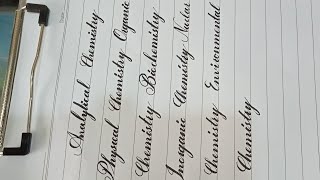 Analytical Chemistry
Physical Chemistry Organic
Chemistry Biochemistry
Inorganic Chemistry Nuclar
Chemistry Environmental
Chemistry